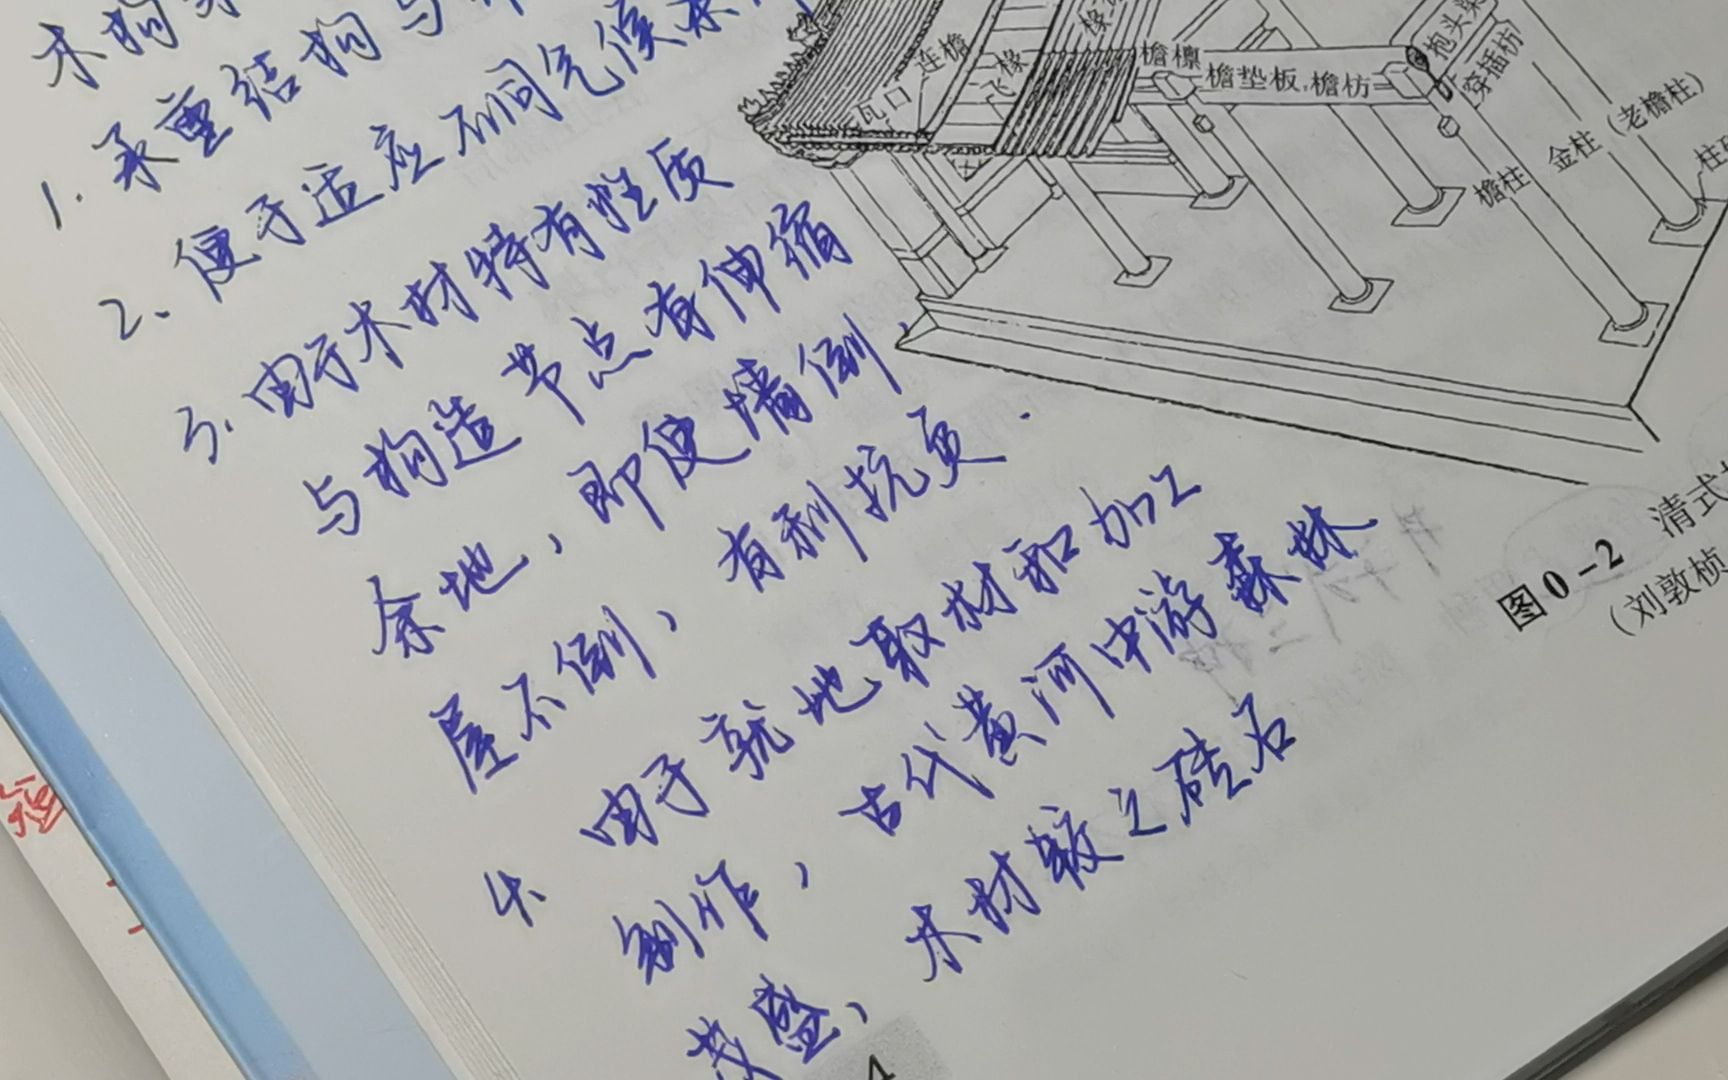 木构
1. 承重结构与
2、便于适应不同气候条
3. 由于木材特有性质
与构造节点有伸缩
余地，即使墙倒，
屋不倒，有利抗负.
4、由于就地取材和加工
制作，古代黄河中游森林
茂盛，木材较之砖石
连檐
飞椽
瓦口
檐檩
檐垫板,檐枋
抱头梁
穿插枋
檐柱
金柱（老檐柱）
图0-2 清式
（刘敦桢
4